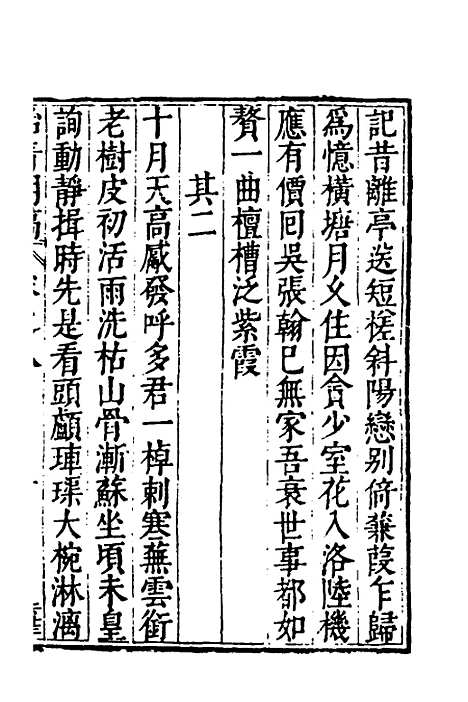 記昔離亭送短槎斜陽戀别倚蒹葭乍歸
爲憶橫塘月久住因貪少室花入洛陸機
應有價囘吳張翰已無家吾衰世事都如
贅一曲檀槽泛紫霞
其二
十月天高觱發呼多君一棹刺寒蕪雲銜
老樹皮初活雨洗枯山骨漸蘇坐頃未皇
詢動靜揖時先是看頭顱璉瑈大椀淋漓